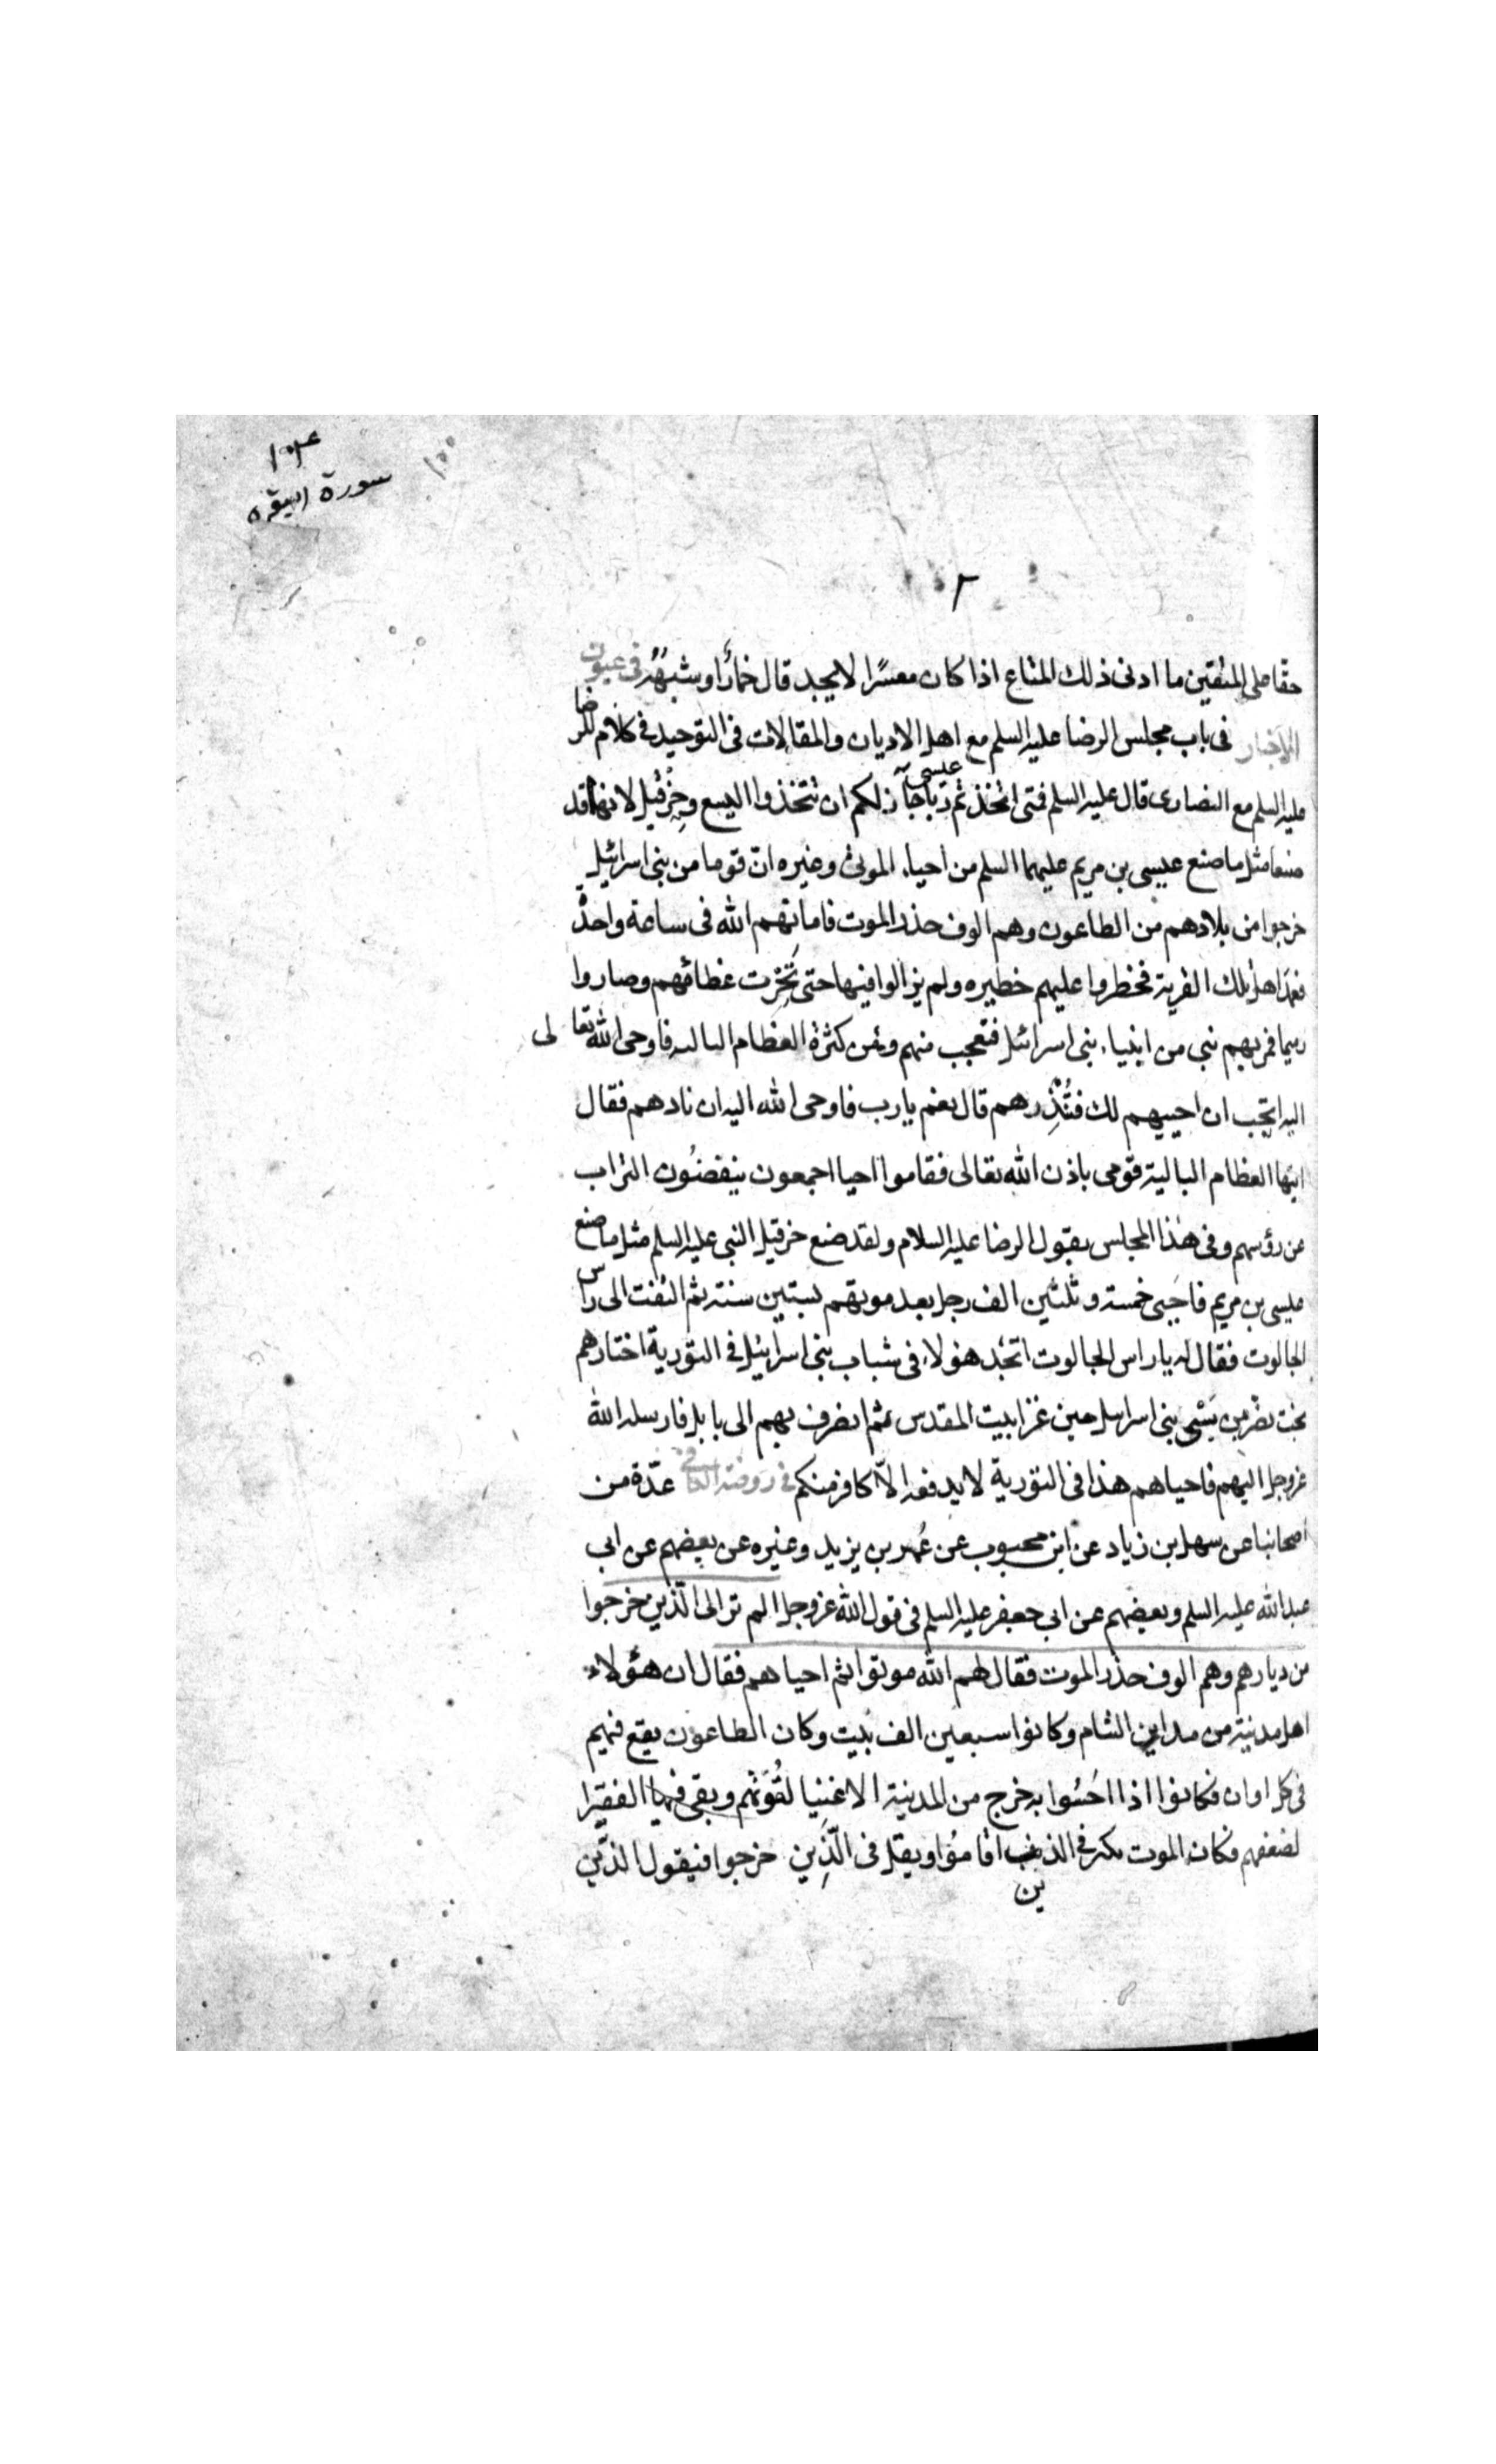 ١٠٣
سورة البقره
١٠٥
٢
حقا على المتقين ما ادنى ذلك المتاع اذا كان معسرًا لا يجد قال خمارًا وشبهُهُ فى عيون
الاخبار فى باب مجلس الرضا عليه السلم مع اهل الاديان والمقالات فى التوحيد فى كلام للرضا
عليه السلم مع النصارى قال عليه السلم فمتى اتخذتم عيسى ربا جاز لكم ان تتخذوا اليسع وحِزْقيل لانهما قد
صنعا مثل ما صنع عيسى بن مريم عليهما السلم من احياء الموتى وغيره انّ قوما من بنى اسرائيل
خرجوا من بلادهم من الطاعون وهم الوف حذر الموت فاماتهم الله فى ساعة واحدة
فعمد اهل تلك القرية فحظروا عليهم حظيره ولم يزالوا فيها حتى نَخِرَت عظامهم وصاروا
رميما فمر بهم نبى من انبياء بنى اسرائيل فتعجب منهم ومن كثرة العظام الباليه فاوحى الله تعالى
اليه اتحب ان احييهم لك فتُنْذِرهم قال نعم يا رب فاوحى الله اليه ان نادهم فقال
ايتها العظام البالية قومى باذن الله تعالى فقاموا احيا اجمعون ينفضُون التراب
عن رؤسهم وفى هذا المجلس يقول الرضا عليه السلام ولقد صنع حزقيل النبى عليه السلم مثل ما صنع
عيسى بن مريم فاحيى خمسة وثلثين الف رجل بعد موتهم بستين سنة ثم التفت الى راس
الجالوت فقال له يا راس الجالوت اتجد هؤلاء فى شباب بنى اسرائيل فى التورية اختارهم
بخت نصر من سَبْى بنى اسرائيل حين غزا بيت المقدس ثم انصرف بهم الى بابل فارسله الله
عزوجل اليهم فاحياهم هذا فى التورية لا يدفعه الاّ كافر منكم فى روضة الكافى عدّة من
اصحابنا عن سهل بن زياد عن ابن محبوب عن عُمر بن يزيد وغيره عن بعضهم عن ابى
عبد الله عليه السلم وبعضهم عن ابى جعفر عليه السلم فى قول الله عزوجل الم تر الى الّذين خرجوا
من ديارهم وهم الوف حذر الموت فقال لهم الله موتوا ثم احياهم فقال ان هؤلاء
اهل مدينة من مداين الشام وكانوا سبعين الف بيت وكان الطاعون يقع فيهم
فى كل اوان فكانوا اذا احَسُوا به خرج من المدينة الاغنِيا لقُوَتهم وبقى فيها الفقرا
لضعفهم فكان الموت يكثر فى الذين اقامُوا ويقل فى الّذِين خرجوا فيقول الذّين
ين